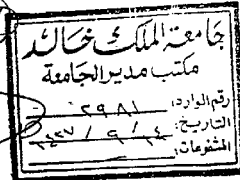 جامعة الملك خالد
مكتب مدير الجامعة
رقم الوارد: ٢٩٨١
التاريخ: ١٤ / ٩ /
المشفوعات: